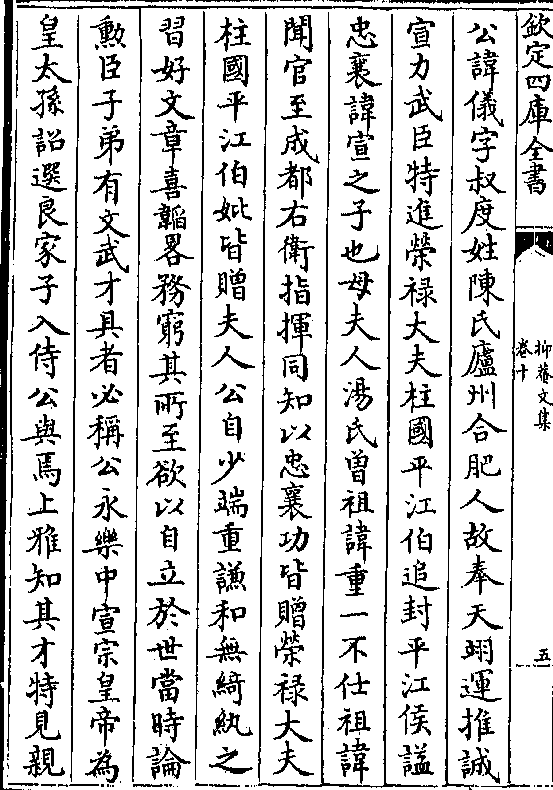 欽定四庫全書
抑菴文集
卷十
五
公諱儀字叔度姓陳氏廬州合肥人故奉天翊運推誠
宣力武臣特進榮禄大夫柱國平江伯追封平江侯諡
忠襄諱宣之子也母夫人湯氏曽祖諱重一不仕祖諱
聞官至成都右衛指揮同知以忠襄功皆贈榮禄大夫
柱國平江伯妣皆贈夫人公自少端重謙和無綺紈之
習好文章喜韜畧務窮其所至欲以自立於世當時論
勲臣子弟有文武才具者必稱公永樂中宣宗皇帝為
皇太孫詔選良家子入侍公與焉上雅知其才特見親